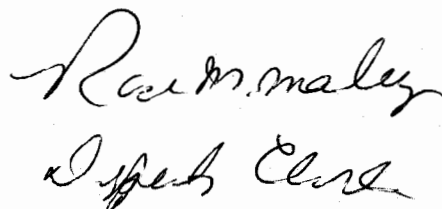 Rose M. Maley
Deputy Clerk